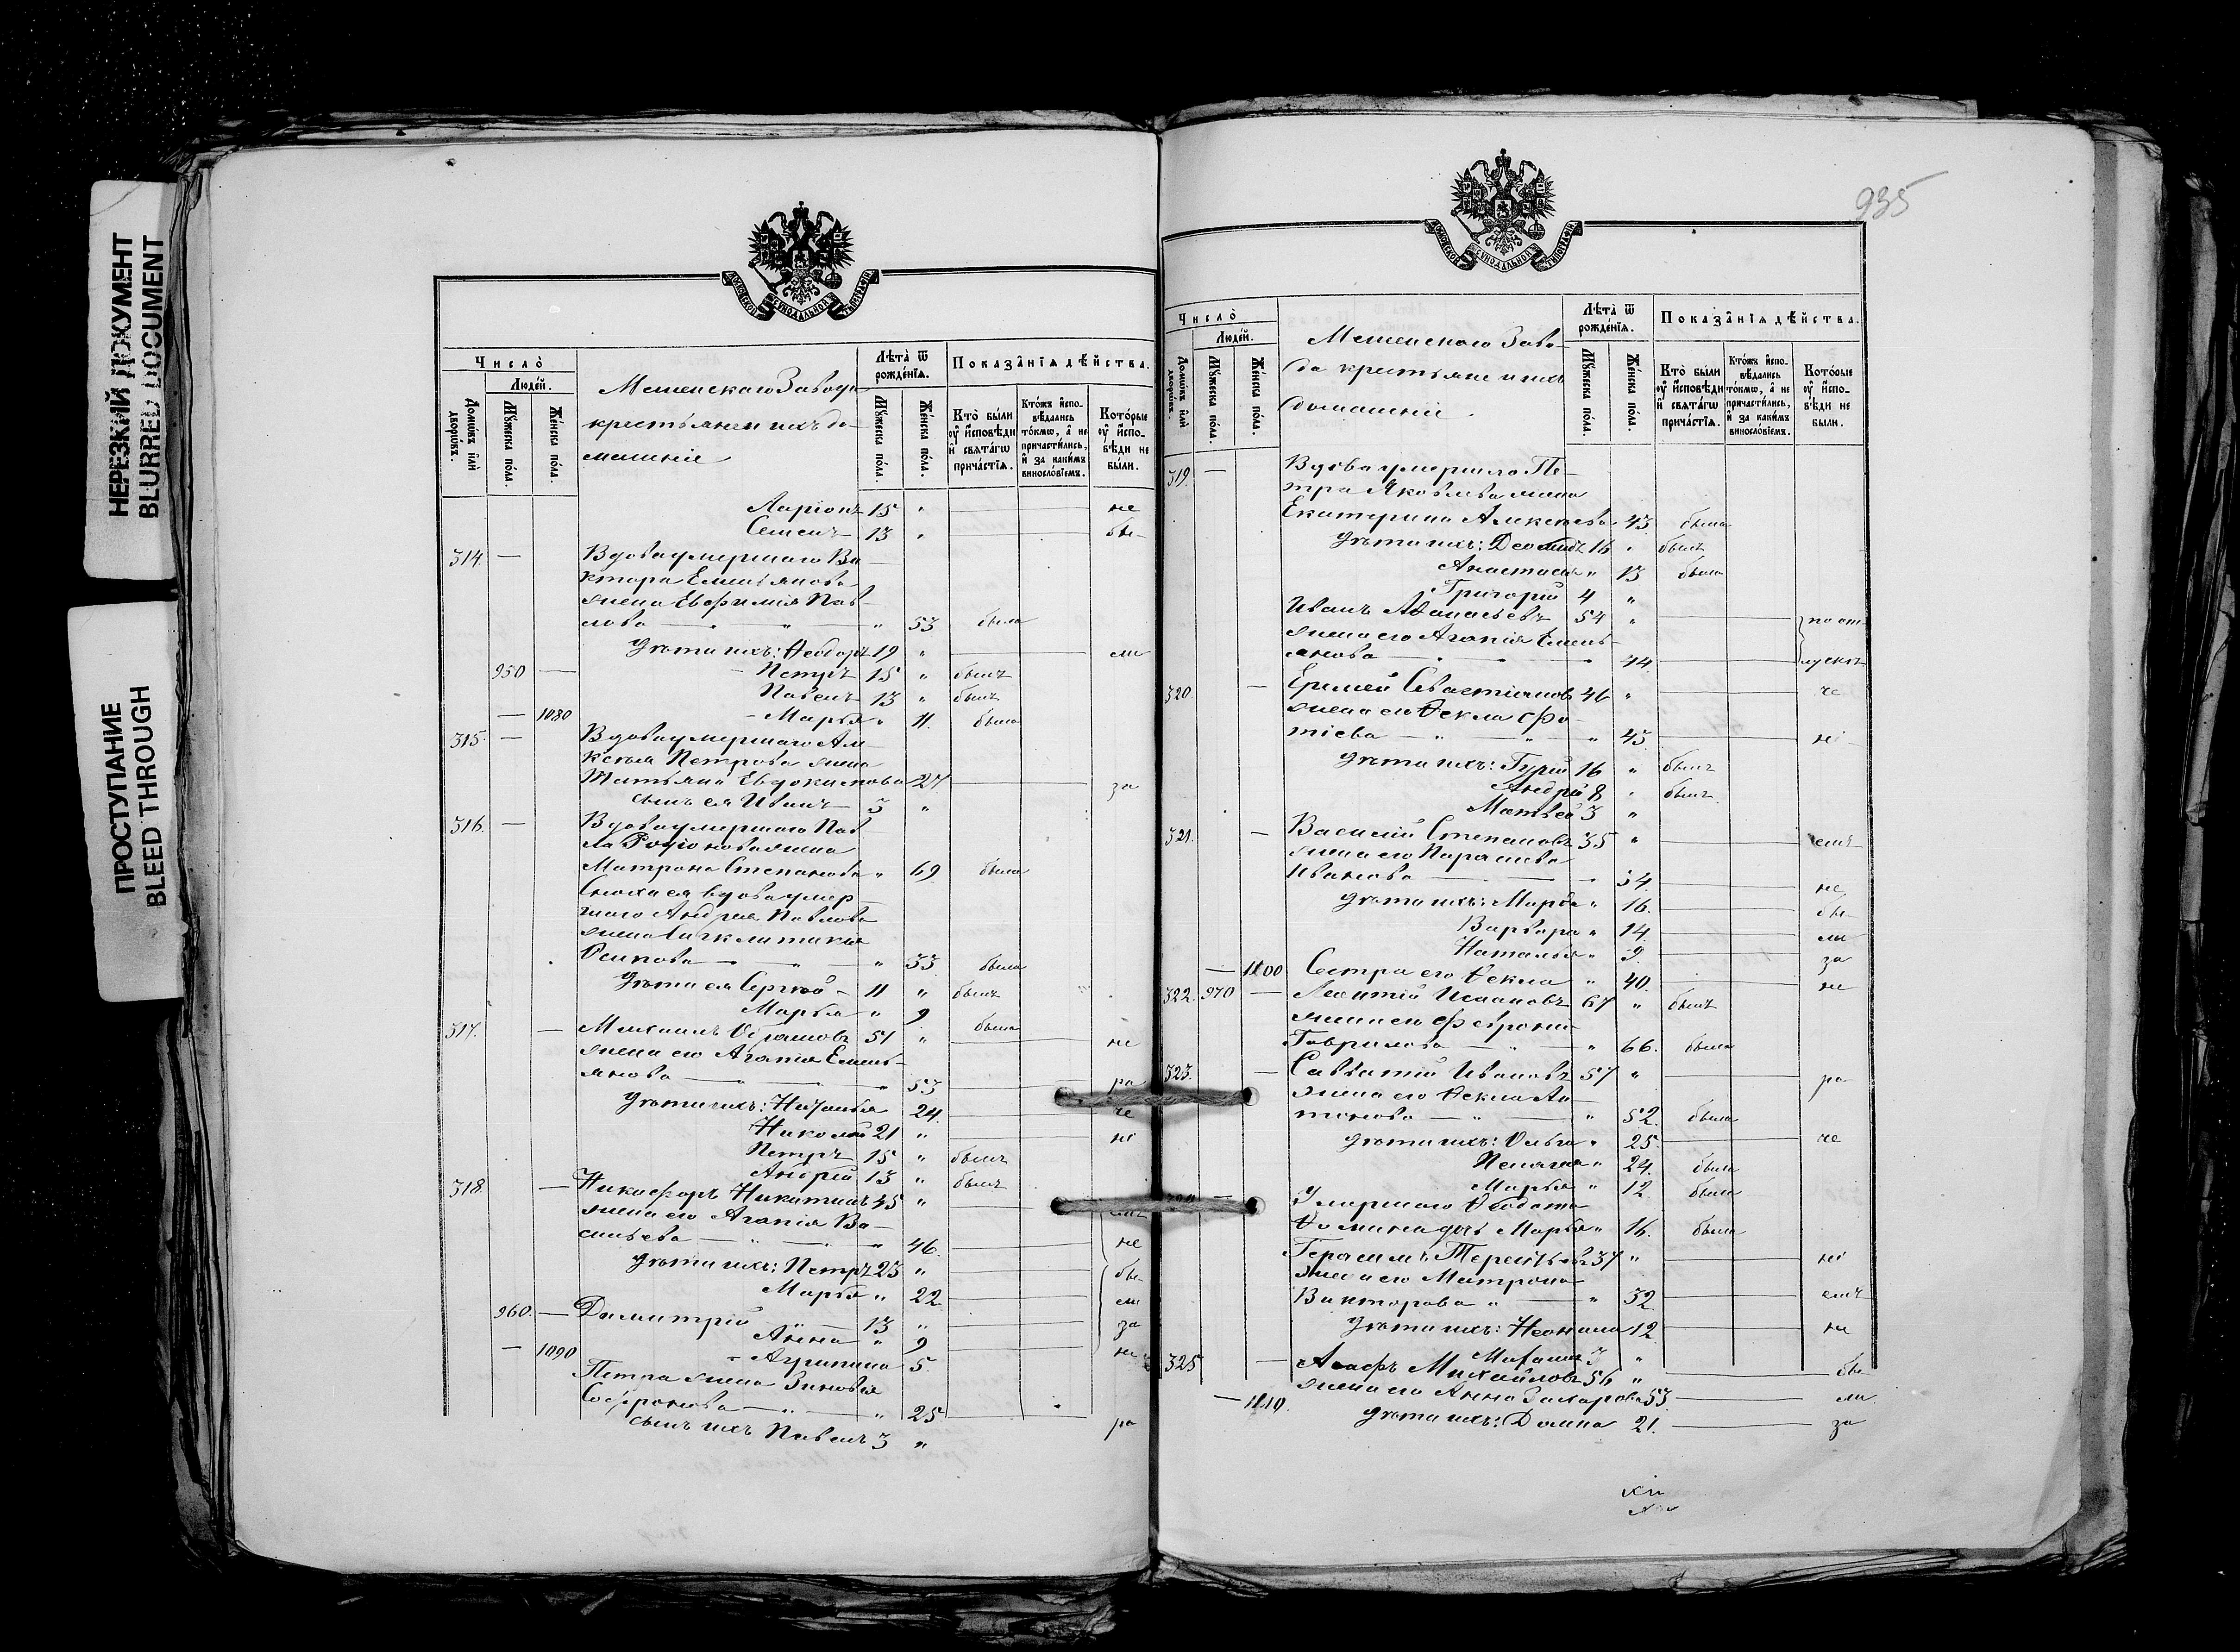 НЕРЕЗКИЙ ДОКУМЕНТ
BLURRED DOCUMENT
ПРОСТУПАНИЕ
BLEED THROUGH
МОСКОВСКОЙ СѴНОДАЛЬНОЙ ТИПОГРАФІИ
Число̀
Людѐй.
Домѡ́въ и҆лѝ дворѡ́въ.
Мꙋ́жеска по́ла.
Же́нска по́ла.
Завода
крестьяне и ихъ до-
машніе
Лѣта̀ ѿ рожде́нїѧ.
Мꙋ́жеска по́ла.
Же́нска по́ла.
Показа̑нїѧ дѣ́йства.
Кто̀ бы́ли ᲂу҆ и҆сповѣ́ди и҆ свѧта́гѡ прича́стїѧ.
Кто́жъ и҆сповѣ́дались то́кмѡ, а҆ не причасти́лись, и҆ за каки́мъ винослѡ́вїемъ.
Кото́рые ᲂу҆ и҆сповѣ́ди не бы́ли.
Ларіонъ 15 " не
Семенъ 13 " бы-
314. — Вдова умершаго Ви-
ктора Емельянова
жена Евфимія Пав-
лова — " — " 53 была
Дѣти ихъ: Ѳеодоръ 19 " ли
950 — Петръ 15 " былъ
Павелъ 13 " былъ
— 1080 Марья " 11. была
315. — Вдова умершаго Але-
ксѣя Петрова жена
Татьяна Евдокимова 27 за
сынъ ея Иванъ 3 "
316. — Вдова умершаго Пав-
ла Родіонова жена
Матрона Степанова " 69 была
Сноха ея вдова умер-
шаго Андрея Павлова
жена
Осипова — " — " 33 была
Дѣти ея Сергѣй 11 " былъ
Марья " 9 была
317. — Михаилъ Абрамовъ 51 " не
жена его Агапія Емель-
янова — " — " 53 ра
Дѣти ихъ: Наталья 24. че
Николай 21 " ні
Петръ 15 " былъ
Андрей 13 " былъ
318. — Никифоръ Никитинъ 45 " емъ
жена его Агапія Ва-
сильева — " — " 46. не
Дѣти ихъ: Петръ 23 " бы-
Марья " 22 ли
960. — Димитрій 13 " за
Анна " 9 не
— 1090 Агрипина 5.
Петра жена Зиновія
Софронова — " — " 25 ра
сынъ ихъ Павелъ 3 "
935
МОСКОВСКОЙ СѴНОДАЛЬНОЙ ТИПОГРАФІИ
Число̀
Людѐй.
Домѡ́въ и҆лѝ дворѡ́въ.
Мꙋ́жеска по́ла.
Же́нска по́ла.
Заво-
да крестьяне и ихъ
домашніе.
Лѣта̀ ѿ рожде́нїѧ.
Мꙋ́жеска по́ла.
Же́нска по́ла.
Показа̑нїѧ дѣ́йства.
Кто̀ бы́ли ᲂу҆ и҆сповѣ́ди и҆ свѧта́гѡ прича́стїѧ.
Кто́жъ и҆сповѣ́дались то́кмѡ, а҆ не причасти́лись, и҆ за каки́мъ винослѡ́вїемъ.
Кото́рые ᲂу҆ и҆сповѣ́ди не бы́ли.
319. — Вдова умершаго Пе-
тра Яковлева жена
Екатерина Алексѣева 43 была
Дѣти ихъ: Деомидъ 16 " былъ
Анастасія " 13 была
Григорій 4 "
Иванъ Аѳанасьевъ 54 " по от-
жена его Агапія Емель-
янова — " — " 44. лускъ
320. — Ермей Севастіановъ 46 " че
жена его Ѳекла Фо-
тіева — " — " 45. ні
Дѣти ихъ: Гурій 16 " былъ
Андрей 8 " былъ
Матвей 3 "
321. — Василій Степановъ 35 " емъ
жена его Парасковія
Иванова — " 34. не
Дѣти ихъ: Марья " 16. бы-
Варвара " 14. ли
Наталья " 9. за
— 1100 Сестра его Ѳекла " 40. не
322. 970 — Леонтій 67 " былъ
жена его Февронія
Гаврилова — " — " 66. была
323. — Савватій Ивановъ 57 " ра
жена его Ѳекла Ан-
тонова — " — " 52. была
Дѣти ихъ: Ольга " 25. че
Пелагія " 24. была
Марья " 12. была
Умершаго Ѳеодота
Ѳомина дочь Марья " 16. была
Герасимъ Терентьевъ 37 " ні
жена его Матрона
Викторова " — " 32. емъ
Дѣти ихъ: Неонила 12 не
3 "
325 — Іосифъ Михайловъ 56 " бы-
жена его Анна Захарова 53. ли
— 1110. Дѣти ихъ: Домна 21. за